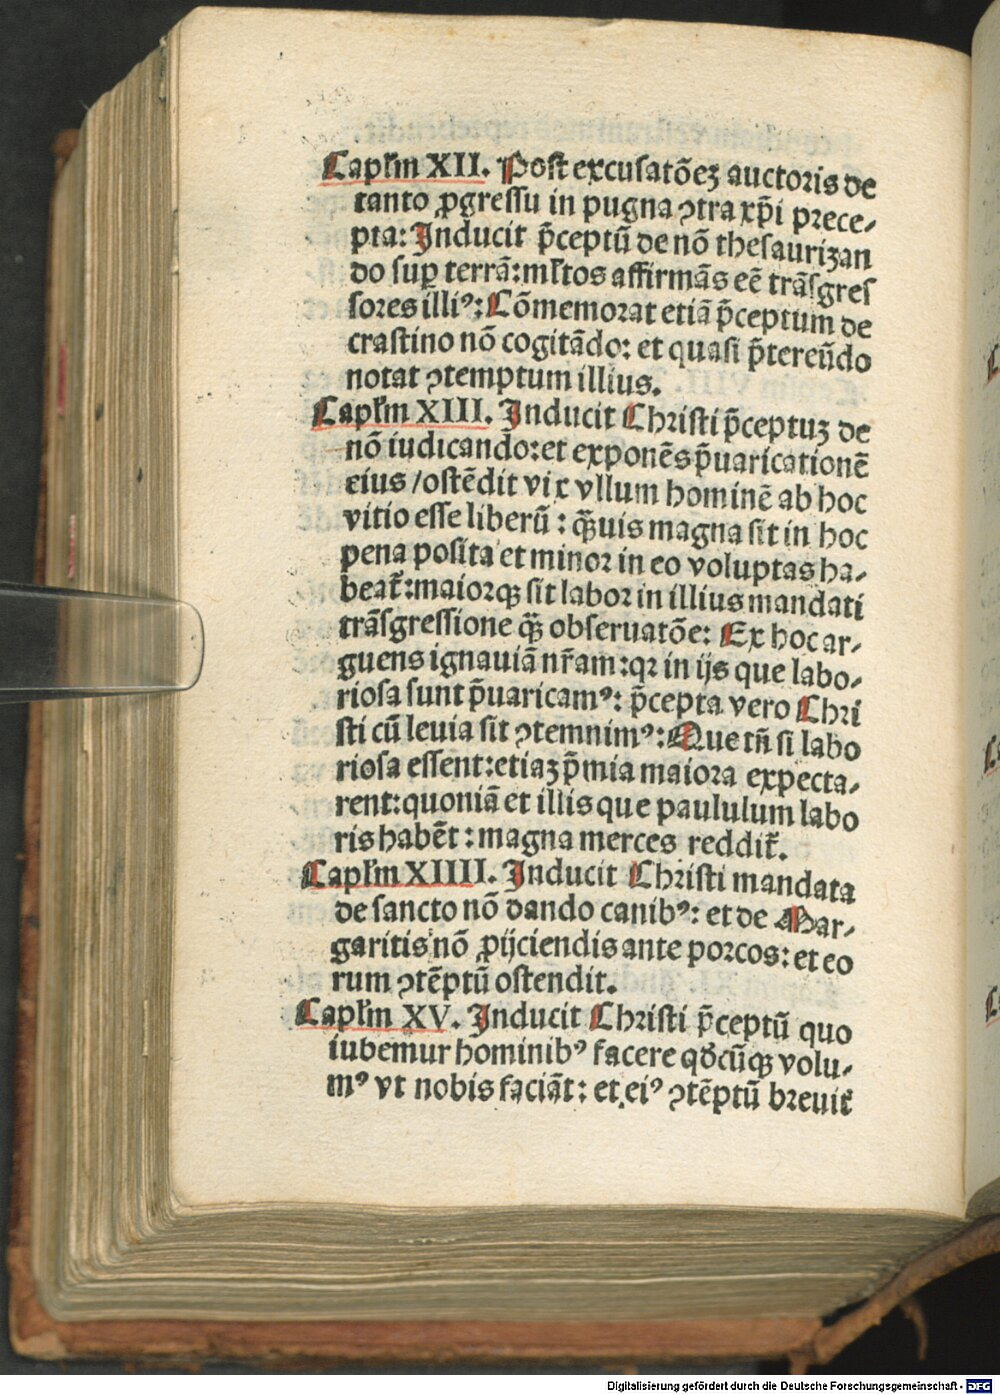 Caplm̄ XII. Post excusatōeʒ auctoris de
tanto ꝓgressu in pugna ꝯtra xp̄i prece-
pta: Inducit p̄ceptū de nō thesaurizan
do suꝑ terrā: ml̄tos affirmās eē trāsgres
sores illiꝰ: Cōmemorat etiā p̄ceptum de
crastino nō cogitādo: et quasi p̄tereūdo
notat ꝯtemptum illius.
Caplm̄ XIII. Inducit Christi p̄ceptuʒ de
nō iudicando: et exponēs p̄uaricationē
eius / ostēdit vix vllum hominē ab hoc
vitio esse liberū: qͣ̄uis magna sit in hoc
pena posita et minor in eo voluptas ha-
beat᷑: maiorqꝫ sit labor in illius mandati
trāsgressione qͣ̄ obseruatōe: Ex hoc ar-
guens ignauiā nr̄am: qꝛ in ijs que labo-
riosa sunt p̄uaricamꝰ: p̄cepta vero Chri
sti cū leuia sit ꝯtemnimꝰ: Que tn̄ si labo
riosa essent: etiaʒ p̄mia maiora expecta-
rent: quoniā et illis que paululum labo
ris habēt: magna merces reddit᷑.
Caplm̄ XIIII. Inducit Christi mandata
de sancto nō dando canibꝰ: et de Mar-
garitis nō ꝓijciendis ante porcos: et eo
rum ꝯtēptū ostendit.
Caplm̄ XV. Inducit Christi p̄ceptū quo
iubemur hominibꝰ facere qđcūqꝫ volu-
mꝰ vt nobis faciāt: et eiꝰ ꝯtēptū breuit᷑
Digitalisierung gefördert durch die Deutsche Forschungsgemeinschaft - DFG